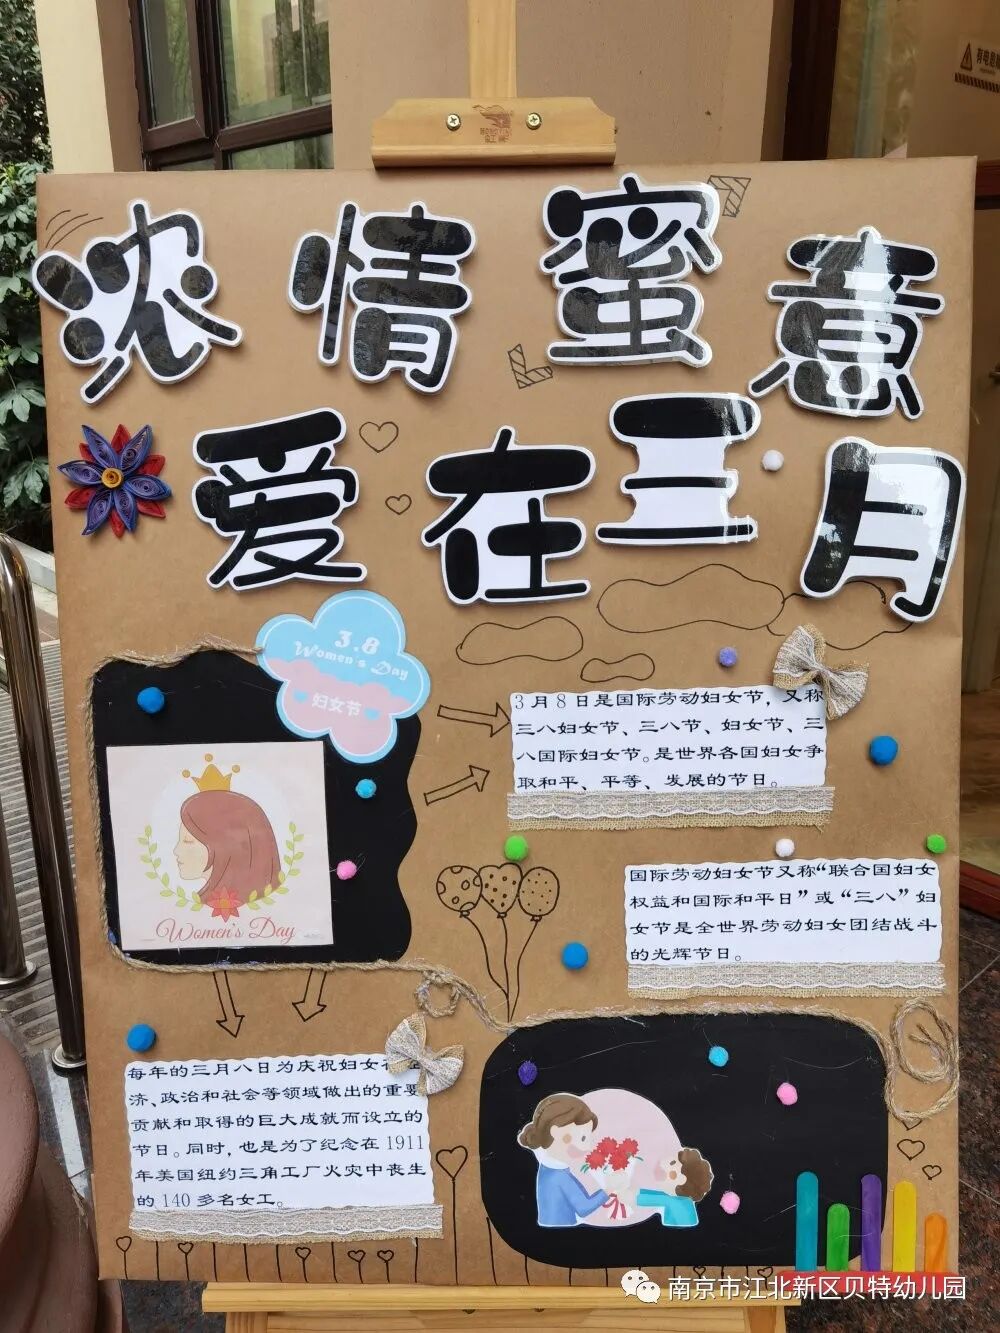 有电危险
浓情蜜意
爱在三月
3.8
Women's Day
妇女节
3月8日是国际劳动妇女节，又称
三八妇女节、三八节、妇女节、三
八国际妇女节。是世界各国妇女争
取和平、平等、发展的节日。
Women's Day
国际劳动妇女节又称“联合国妇女
权益和国际和平日”或“三八”妇
女节是全世界劳动妇女团结战斗
的光辉节日。
每年的三月八日为庆祝妇女在
济、政治和社会等领域做出的重要
贡献和取得的巨大成就而设立的
节日。同时，也是为了纪念在1911
年美国纽约三角工厂火灾中丧生
的140多名女工。
南京市江北新区贝特幼儿园